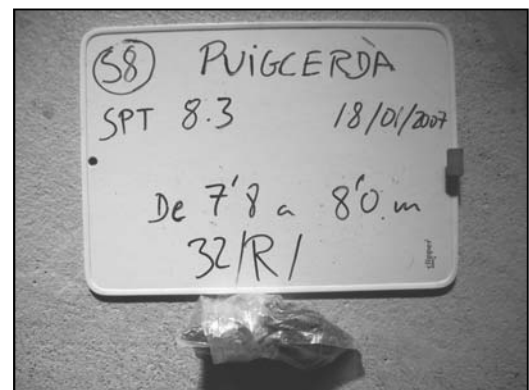 S8 PUIGCERDÀ
SPT 8.3 18/01/2007
De 7'8 a 8'0 m
32/R/